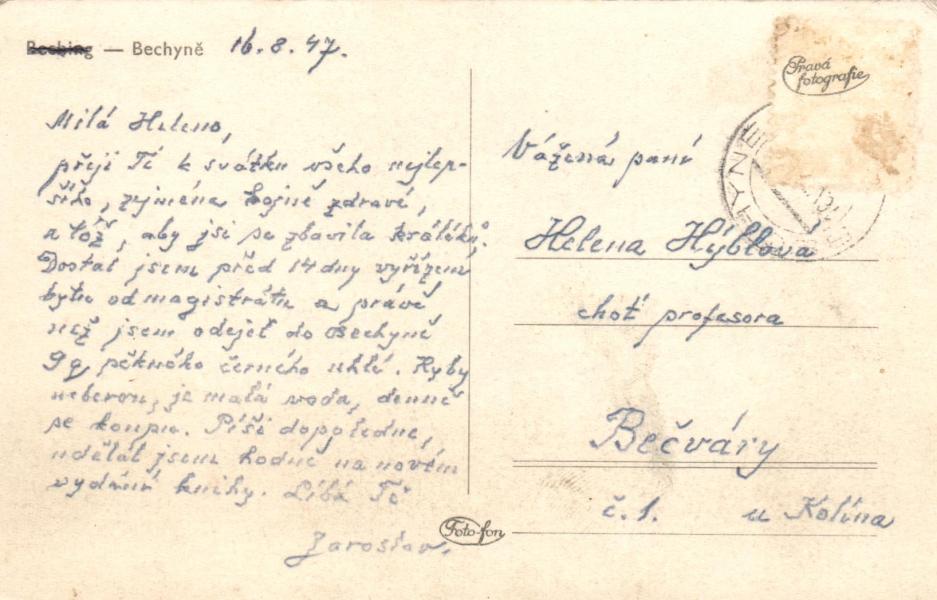 Bechyně — Bechyně 16.8.47.
Pravá
fotografie
Milá Heleno,
přeji Ti k svátku všeho nejlep-
šího, zejména hojně zdraví,
a též, aby jsi se zbavila
Dostal jsem před 14 dny vyřízení
bytu od magistrátu a právě
než jsem odejel do Bechyně
9q pěkného černého uhlí. Ryby
neberou, je malá voda, denně
se koupu. Píši dopoledne,
udělal jsem hodně na novém
vydání knihy. Líbá Tě
Jaroslav.
Vážená paní
Helena Hýblova
choť profesora
Bečváry
č.1. u Kolína
Foto-fon